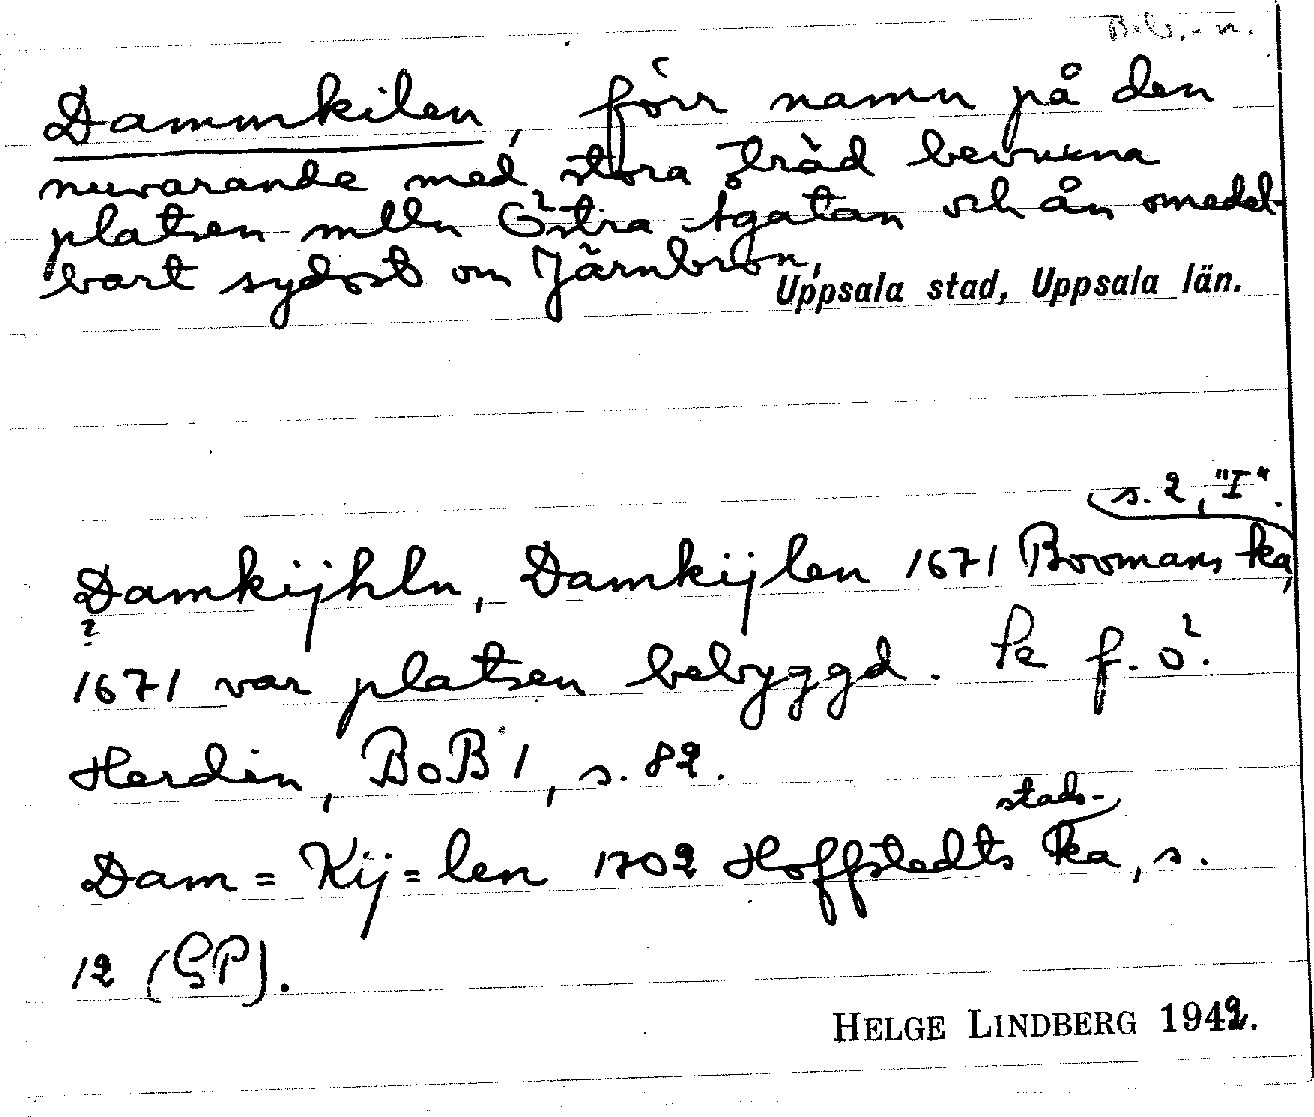 Beb.-n.
Dammkilen, förr namn på den
nuvarande med stora träd bevuxna
platsen mlln Östra Ågatan och ån omedel-
bart sydost om Järnbron,
Uppsala stad, Uppsala län.
s. 2, "I".
Damkijhln, Damkijlen 1671 Boomans ka,
?
1671 var platsen bebyggd. Se f. ö.
Herdin, BoB 1, s. 82.
stads-
Dam=Kij=len 1702 Hoffstedts ka, s.
12 (GP).
HELGE LINDBERG 1942.